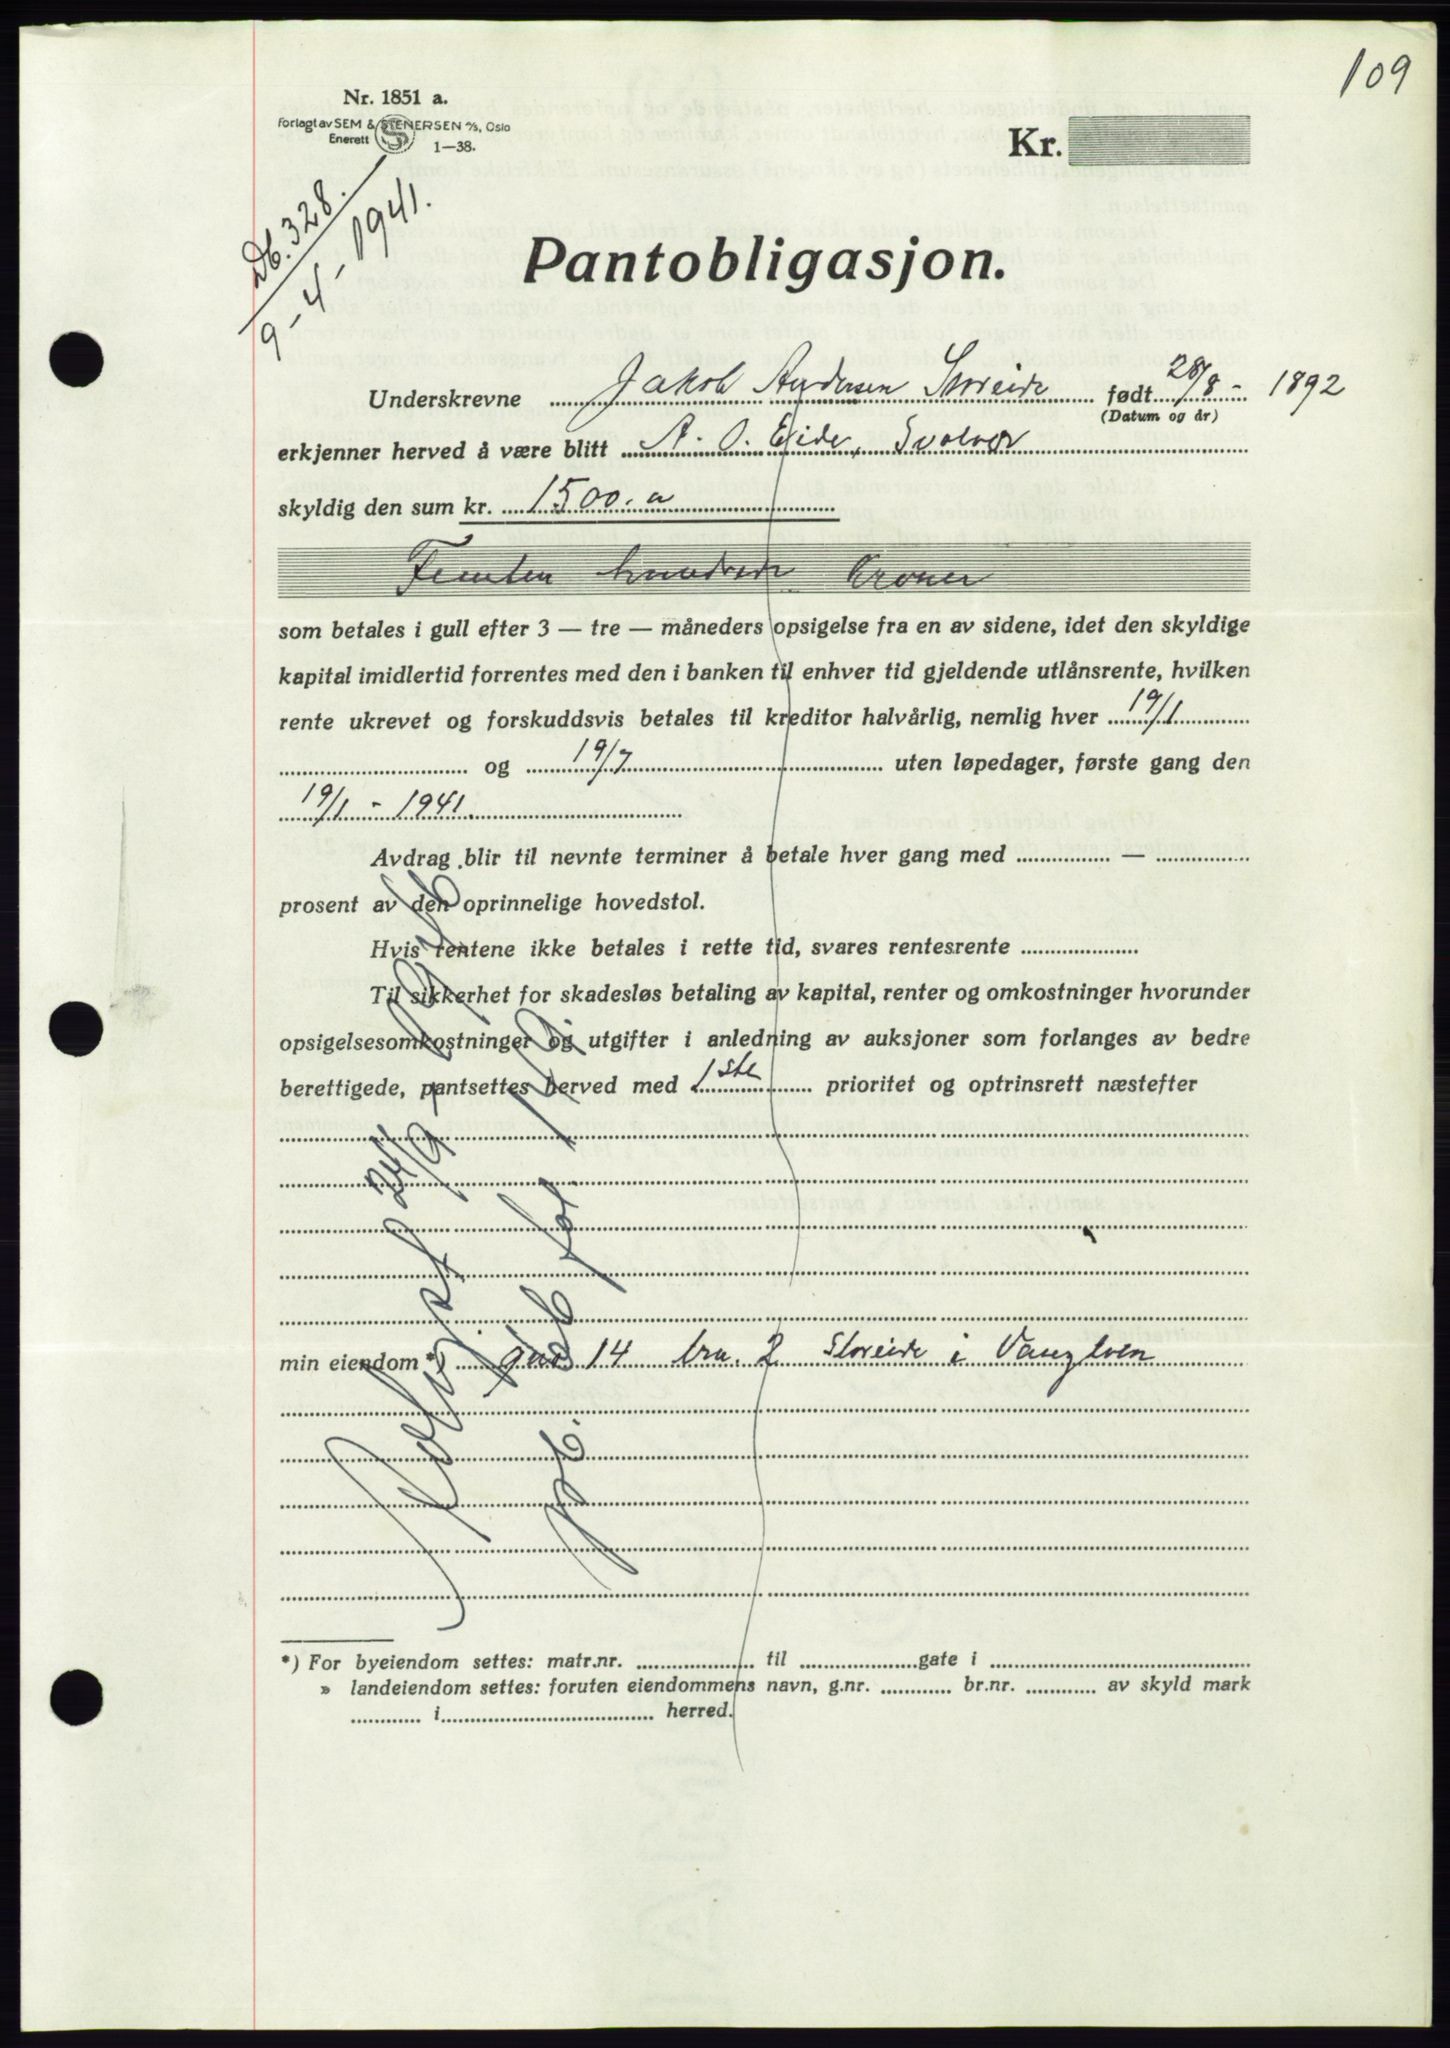 109
Nr. 1851 a.
Forlagt av SEM & STENERSEN A/S, Oslo
Enerett 1—38.
Kr.
Db. 328.
9 - 4 - 1941.
Pantobligasjon.
Underskrevne Jakob Andersen Storeide født 28/8 - 1892
(Datum og år)
erkjenner herved å være blitt A. O. Eide, Svolvær
skyldig den sum kr. 1500.
Femten hundrede Kroner
som betales i gull efter 3 — tre — måneders opsigelse fra en av sidene, idet den skyldige
kapital imidlertid forrentes med den i banken til enhver tid gjeldende utlånsrente, hvilken
rente ukrevet og forskuddsvis betales til kreditor halvårlig, nemlig hver 19/1
og 19/7 uten løpedager, første gang den
19/1 - 1941.
Avdrag blir til nevnte terminer å betale hver gang med —
prosent av den oprinnelige hovedstol.
Hvis rentene ikke betales i rette tid, svares rentesrente
Til sikkerhet for skadesløs betaling av kapital, renter og omkostninger hvorunder
opsigelsesomkostninger og utgifter i anledning av auksjoner som forlanges av bedre
berettigede, pantsettes herved med 1ste prioritet og optrinsrett næstefter
min eiendom *) gno 14 bru. 2 Storeide i
Avlyst 24/9 -
for
*) For byeiendom settes: matr.nr. til gate i
» landeiendom settes: foruten eiendommens navn, g.nr. br.nr. av skyld mark
i herred.